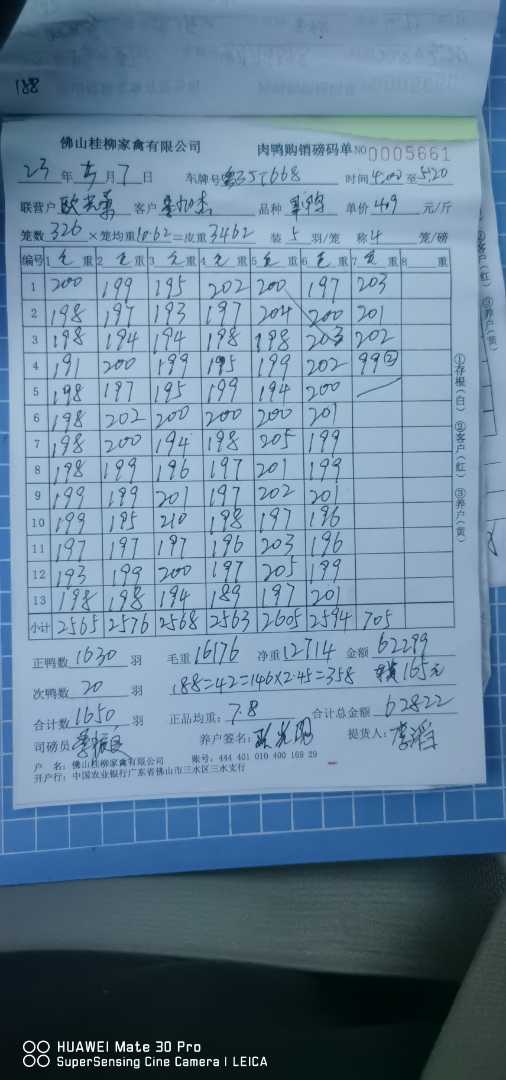 188
佛山桂柳家禽有限公司 肉鸭购销磅码单 NO 0005661
23 年 5 月 7 日 车牌号 时间 4:00 至 5:20
联营户 客户 品种 单价 4.9 元/斤
笼数 326 ×笼均重 10.62 =皮重 3462 装 5 羽/笼 称 4 笼/磅
编号 1 毛 重 2 毛 重 3 毛 重 4 毛 重 5 毛 重 6 毛 重 7 毛 重 8 重
1 200 199 195 202 200 197 203
2 198 197 193 197 204 200 201
3 198 194 194 198 198 203 202
4 191 200 199 195 199 202 99②
5 198 197 195 199 194 200
6 198 202 200 200 200 201
7 198 200 194 198 205 199
8 198 199 196 197 201 199
9 199 199 201 197 202 201
10 199 195 210 198 197 196
11 197 197 197 196 203 196
12 193 199 200 197 205 199
13 198 198 194 189 197 201
小计 2565 2576 2568 2563 2605 2594 705
正鸭数 1630 羽 毛重 16176 净重 12714 金额 62299
次鸭数 20 羽 188-42=146×2.45=358 165元
合计数 1650 羽 正品均重: 7.8 合计总金额 62822
司磅员 养户签名: 提货人:
户 名: 佛山桂柳家禽有限公司 账号: 444 401 010 400 169 29
开户行: 中国农业银行广东省佛山市三水区三水支行
①存根(白) ②客户(红) ③养户(黄)
②客户(红) ③养户(黄)
HUAWEI Mate 30 Pro
SuperSensing Cine Camera | LEICA